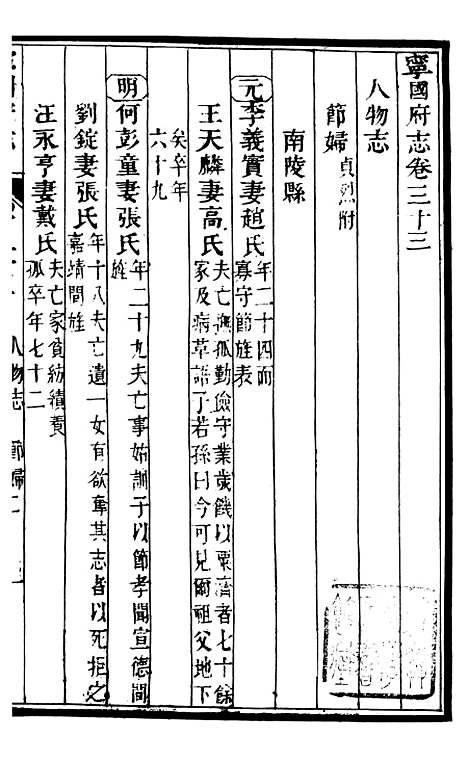 寧國府志卷三十三
人物志
節婦貞烈附
南陵縣
元李義實妻趙氏年二十四而寡守節旌表
王天麟妻高氏夫亡撫孤勤儉守業歲饑以粟濟者七十餘家及病革語子若孫曰今可見爾祖父地下
矣卒年六十九
明何彭童妻張氏年二十九夫亡事姑訓子以節孝聞宣德間旌
劉錠妻張氏年十八夫亡遺一女有欲奪其志者以死拒之嘉靖間旌
汪永亨妻戴氏夫亡家貧紡績養孤卒年七十二
人物志 節婦二